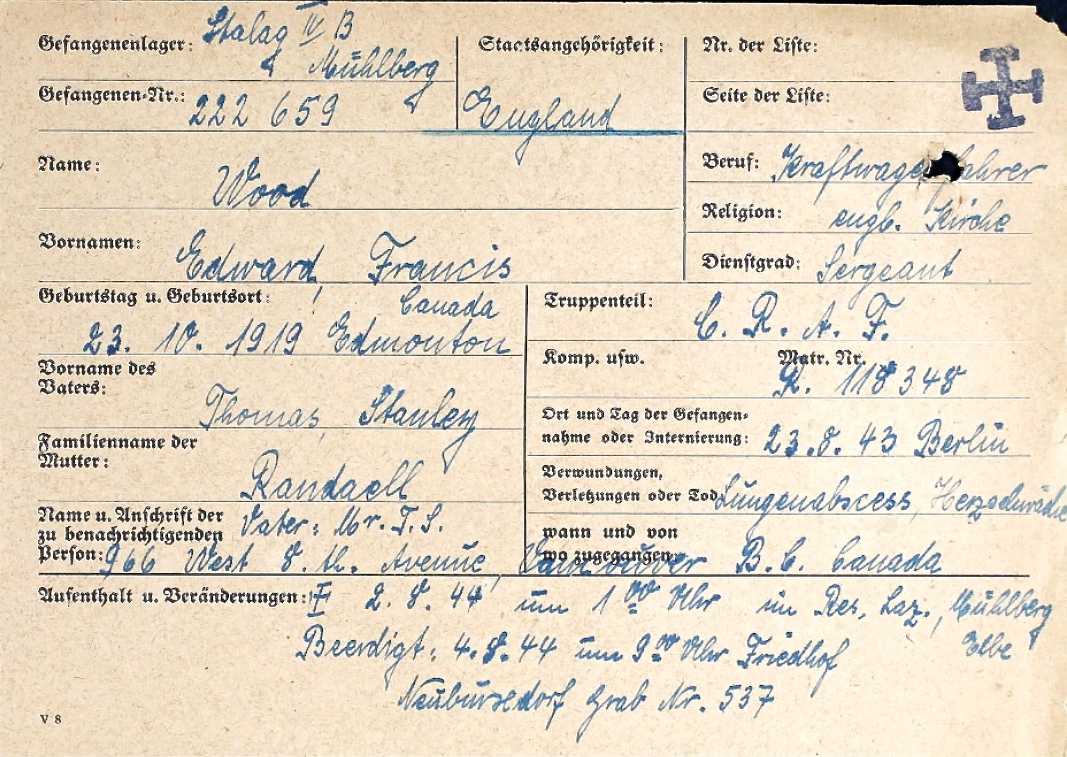 Gefangenenlager: Stalag IV B
Mühlberg
Gefangenen-Nr.: 222 659
Staatsangehörigkeit:
England
Nr. der Liste:
Seite der Liste:
Name:
Wood
Vornamen:
Edward, Francis
Beruf: Kraftwage fahrer
Religion: engl. Kirche
Dienstgrad: Sergeant
Geburtstag u. Geburtsort:
Canada
23. 10. 1919 Edmonton
Vorname des
Vaters:
Thomas, Stanley
Familienname der
Mutter:
Randaell
Truppenteil:
C. R. A. F.
Komp. usw. Matr. Nr.
R. 118348
Ort und Tag der Gefangen-
nahme oder Internierung: 23.8.43 Berlin
Verwundungen,
Verletzungen oder Tod Lungenabscess, Herzschwäche
Name u. Anschrift der
zu benachrichtigenden
Person: Vater: Mr. T. S.
wann und von
wo zugegangen
966 West 8. th. Avenue, Vancouver B.C. Canada
Aufenthalt u. Veränderungen: 2.8.44 um 1 00 Uhr im Res. Laz., Mühlberg
Elbe
Beerdigt: 4.8.44 um 9 00 Uhr Friedhof
Neuburxdorf Grab Nr. 537
V 8